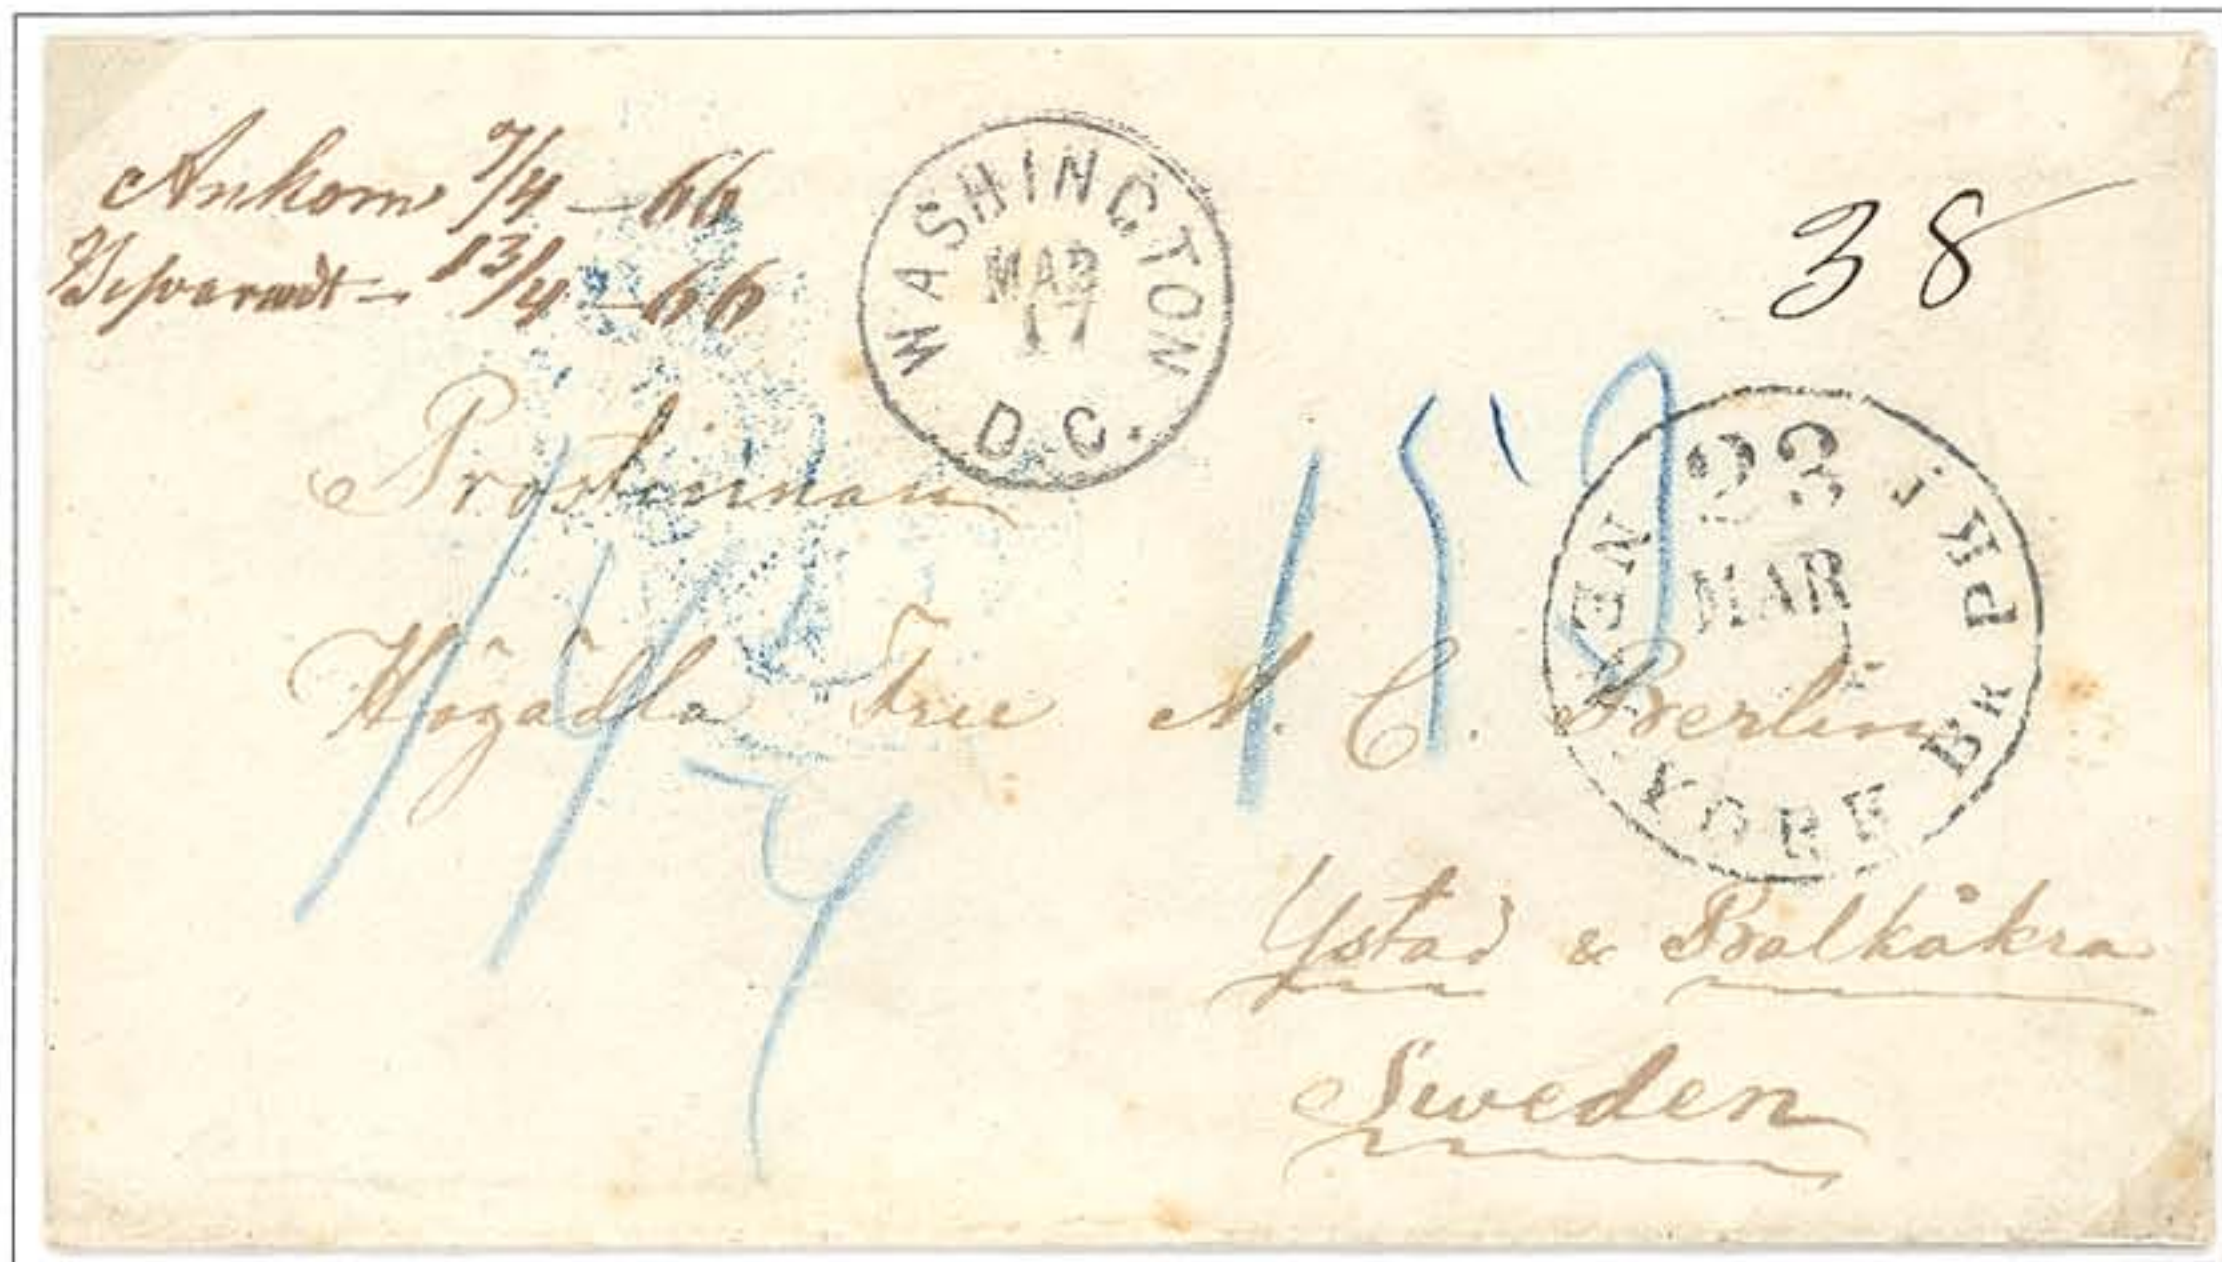 Ankom 7/4 – 66
Besvaradt – 13/4 – 66
WASHINGTON
MAR
17
D.C.
38
23
MAR
NEW YORK BR. PKT.
Prostinnan
Högädla Frue A. C. Berlin
Ystad & Balkåkra
Sweden